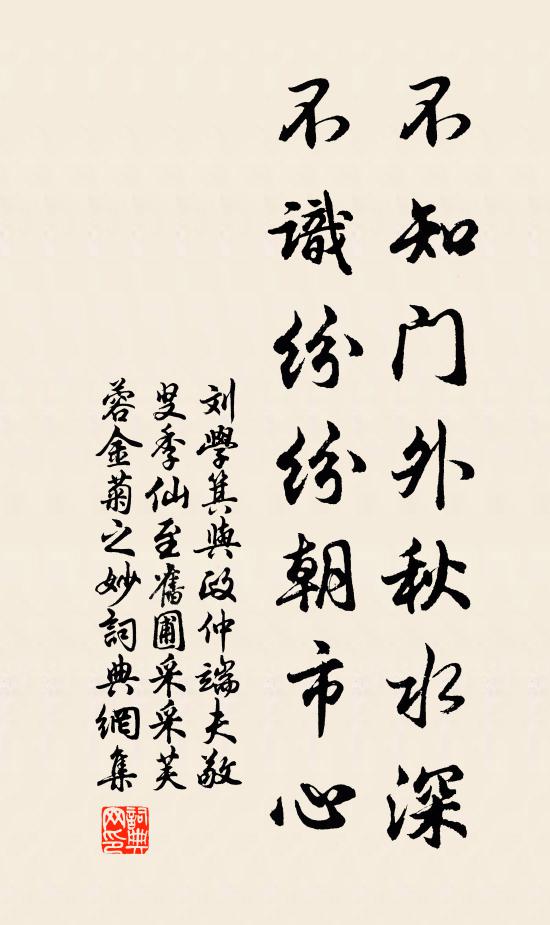 不知门外秋水深
不識纷纷朝市心
刘學箕與政仲端夫敬
叟季仙至舊圃采采芙
蓉金菊之妙詞典網集
詞典网印